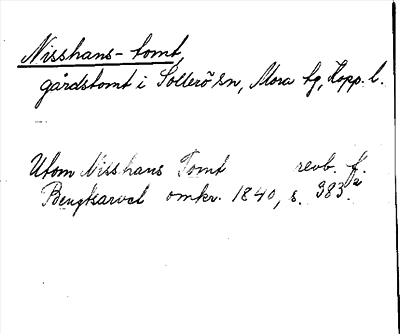 Nisshans-tomt,
gårdstomt i Sollerö sn, Mora tg, Kopp. l.
Utom Nisshans Tomt revb. f.
Bengtsarvet omkr. 1840, s. 383.2